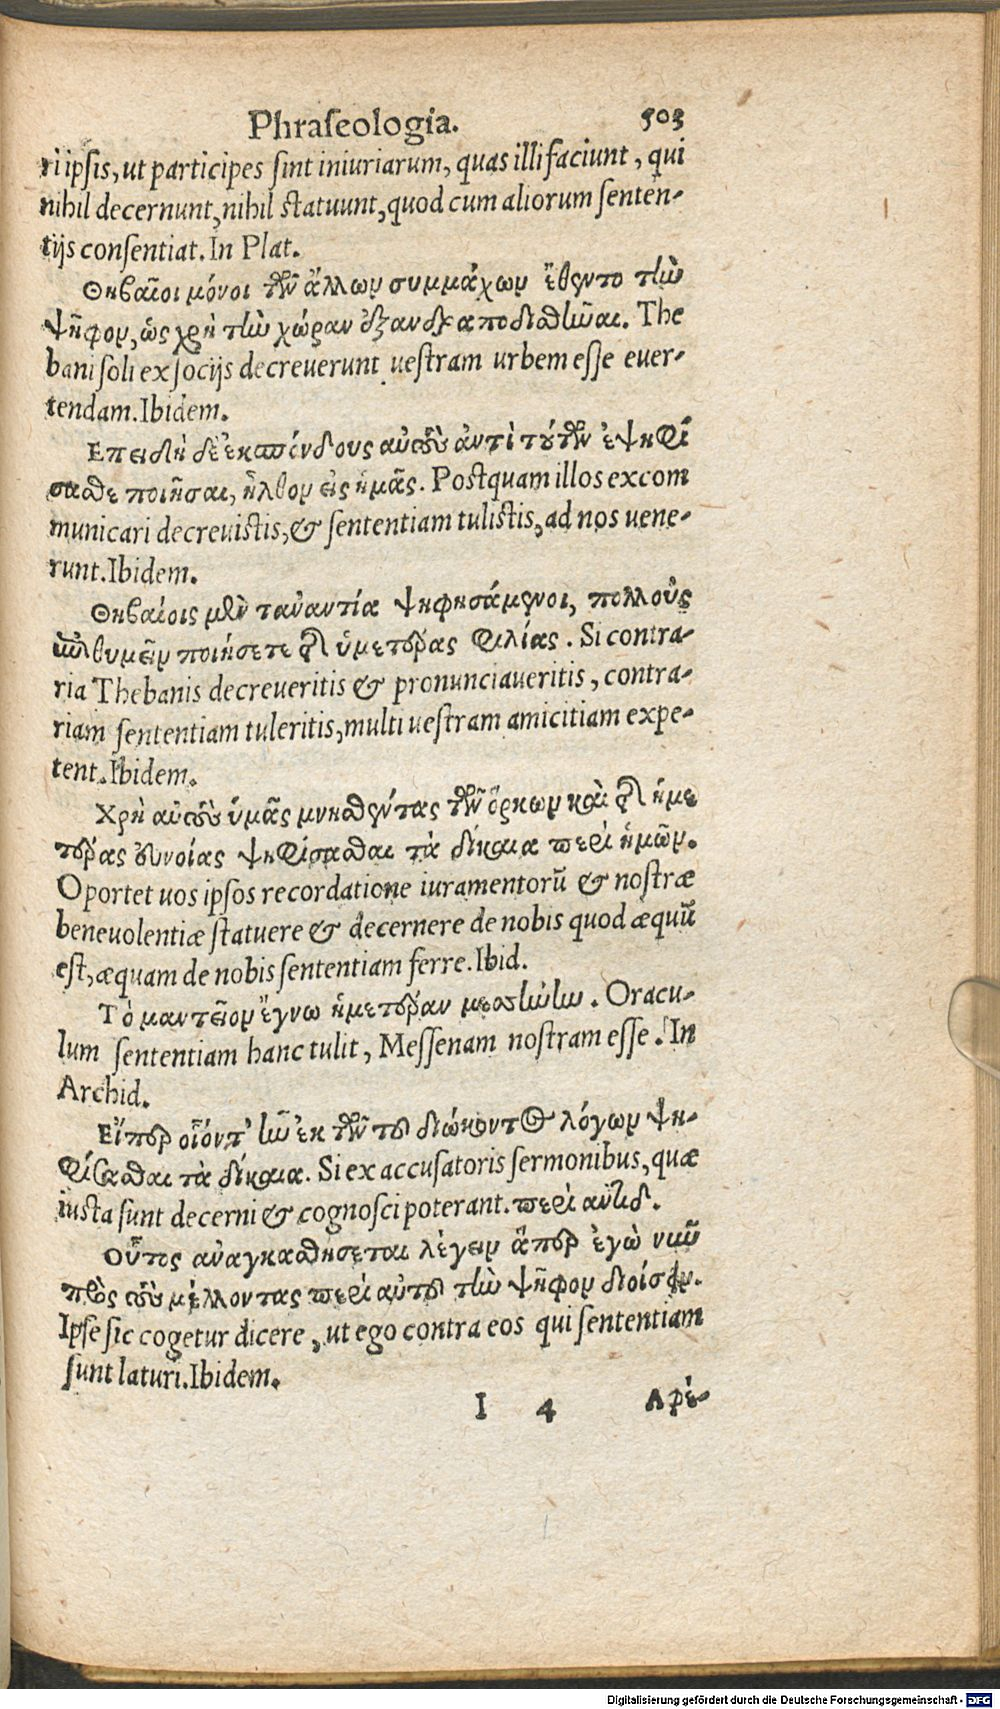 Phraseologia. 503
ri ipsis, ut participes sint iniuriarum, quas illi faciunt, qui
nihil decernunt, nihil statuunt, quod cum aliorum senten-
tijs consentiat. In Plat.
Θηβαῖοι μόνοι τῶν ἄλλων συμμάχων ἔθεντο τὴν
ψῆφον, ὡς χρὴ τὴν χώραν ἐξανδραποδισθῆναι. The
bani soli ex socijs decreverunt vestram urbem esse ever-
tendam. Ibidem.
Επειδὴ δὲ ἐκσπόνδους αὐτοὺς ἀντὶ τούτων ἐψηφί
σασθε ποιῆσαι, ἦλθον εἰς ἡμᾶς. Postquam illos excom
municari decrevistis, & sententiam tulistis, ad nos vene-
runt. Ibidem.
Θηβαίοις μὲν τἀναντία ψηφησάμενοι, πολλοὺς
ἐπιθυμεῖν ποιήσετε τῆς ὑμετέρας φιλίας. Si contra-
ria Thebanis decreveritis & pronunciaveritis, contra-
riam sententiam tuleritis, multi vestram amicitiam expe-
tent. Ibidem.
Χρὴ αὐτοὺς ὑμᾶς μνησθέντας τῶν ὅρκων καὶ τῆς ἡμε
τέρας εὐνοίας ψηφίσασθαι τὰ δίκαια περὶ ἡμῶν.
Oportet vos ipsos recordatione iuramentorū & nostræ
benevolentiæ statuere & decernere de nobis quod æquū
est, æquam de nobis sententiam ferre. Ibid.
Τὸ μαντεῖον ἔγνω ἡμετέραν μεσσήνην. Oracu-
lum sententiam hanc tulit, Messenam nostram esse. In
Archid.
Εἴπερ οἷόντ' ἦν ἐκ τῶν τοῦ διώκοντος λόγων ψη-
φίσασθαι τὰ δίκαια. Si ex accusatoris sermonibus, quæ
iusta sunt decerni & cognosci poterant. περὶ ἀντιδ.
Οὗτος ἀναγκασθήσεται λέγειν ἅπερ ἐγὼ νῦν
πρὸς τοὺς μέλλοντας περὶ αὐτοῦ τὴν ψῆφον διοίσειν.
Ipse sic cogetur dicere, ut ego contra eos qui sententiam
sunt laturi. Ibidem.
I 4 Αρέ-
Digitalisierung gefördert durch die Deutsche Forschungsgemeinschaft - DFG